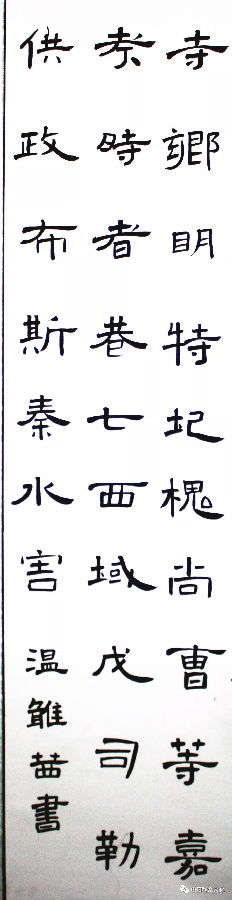 寺鄉明特圮槐尚曹等嘉
孝時者巷七西域戊司勒
供政布斯秦水害
溫雖
書